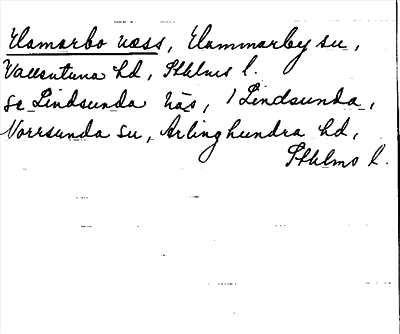 Hamarbo næss, Hammarby sn,
Vallentuna hd, Sthlms l.
se Lindsunda näs, 1 Lindsunda,
Norrsunda sn, Ärlinghundra hd,
Sthlms l.